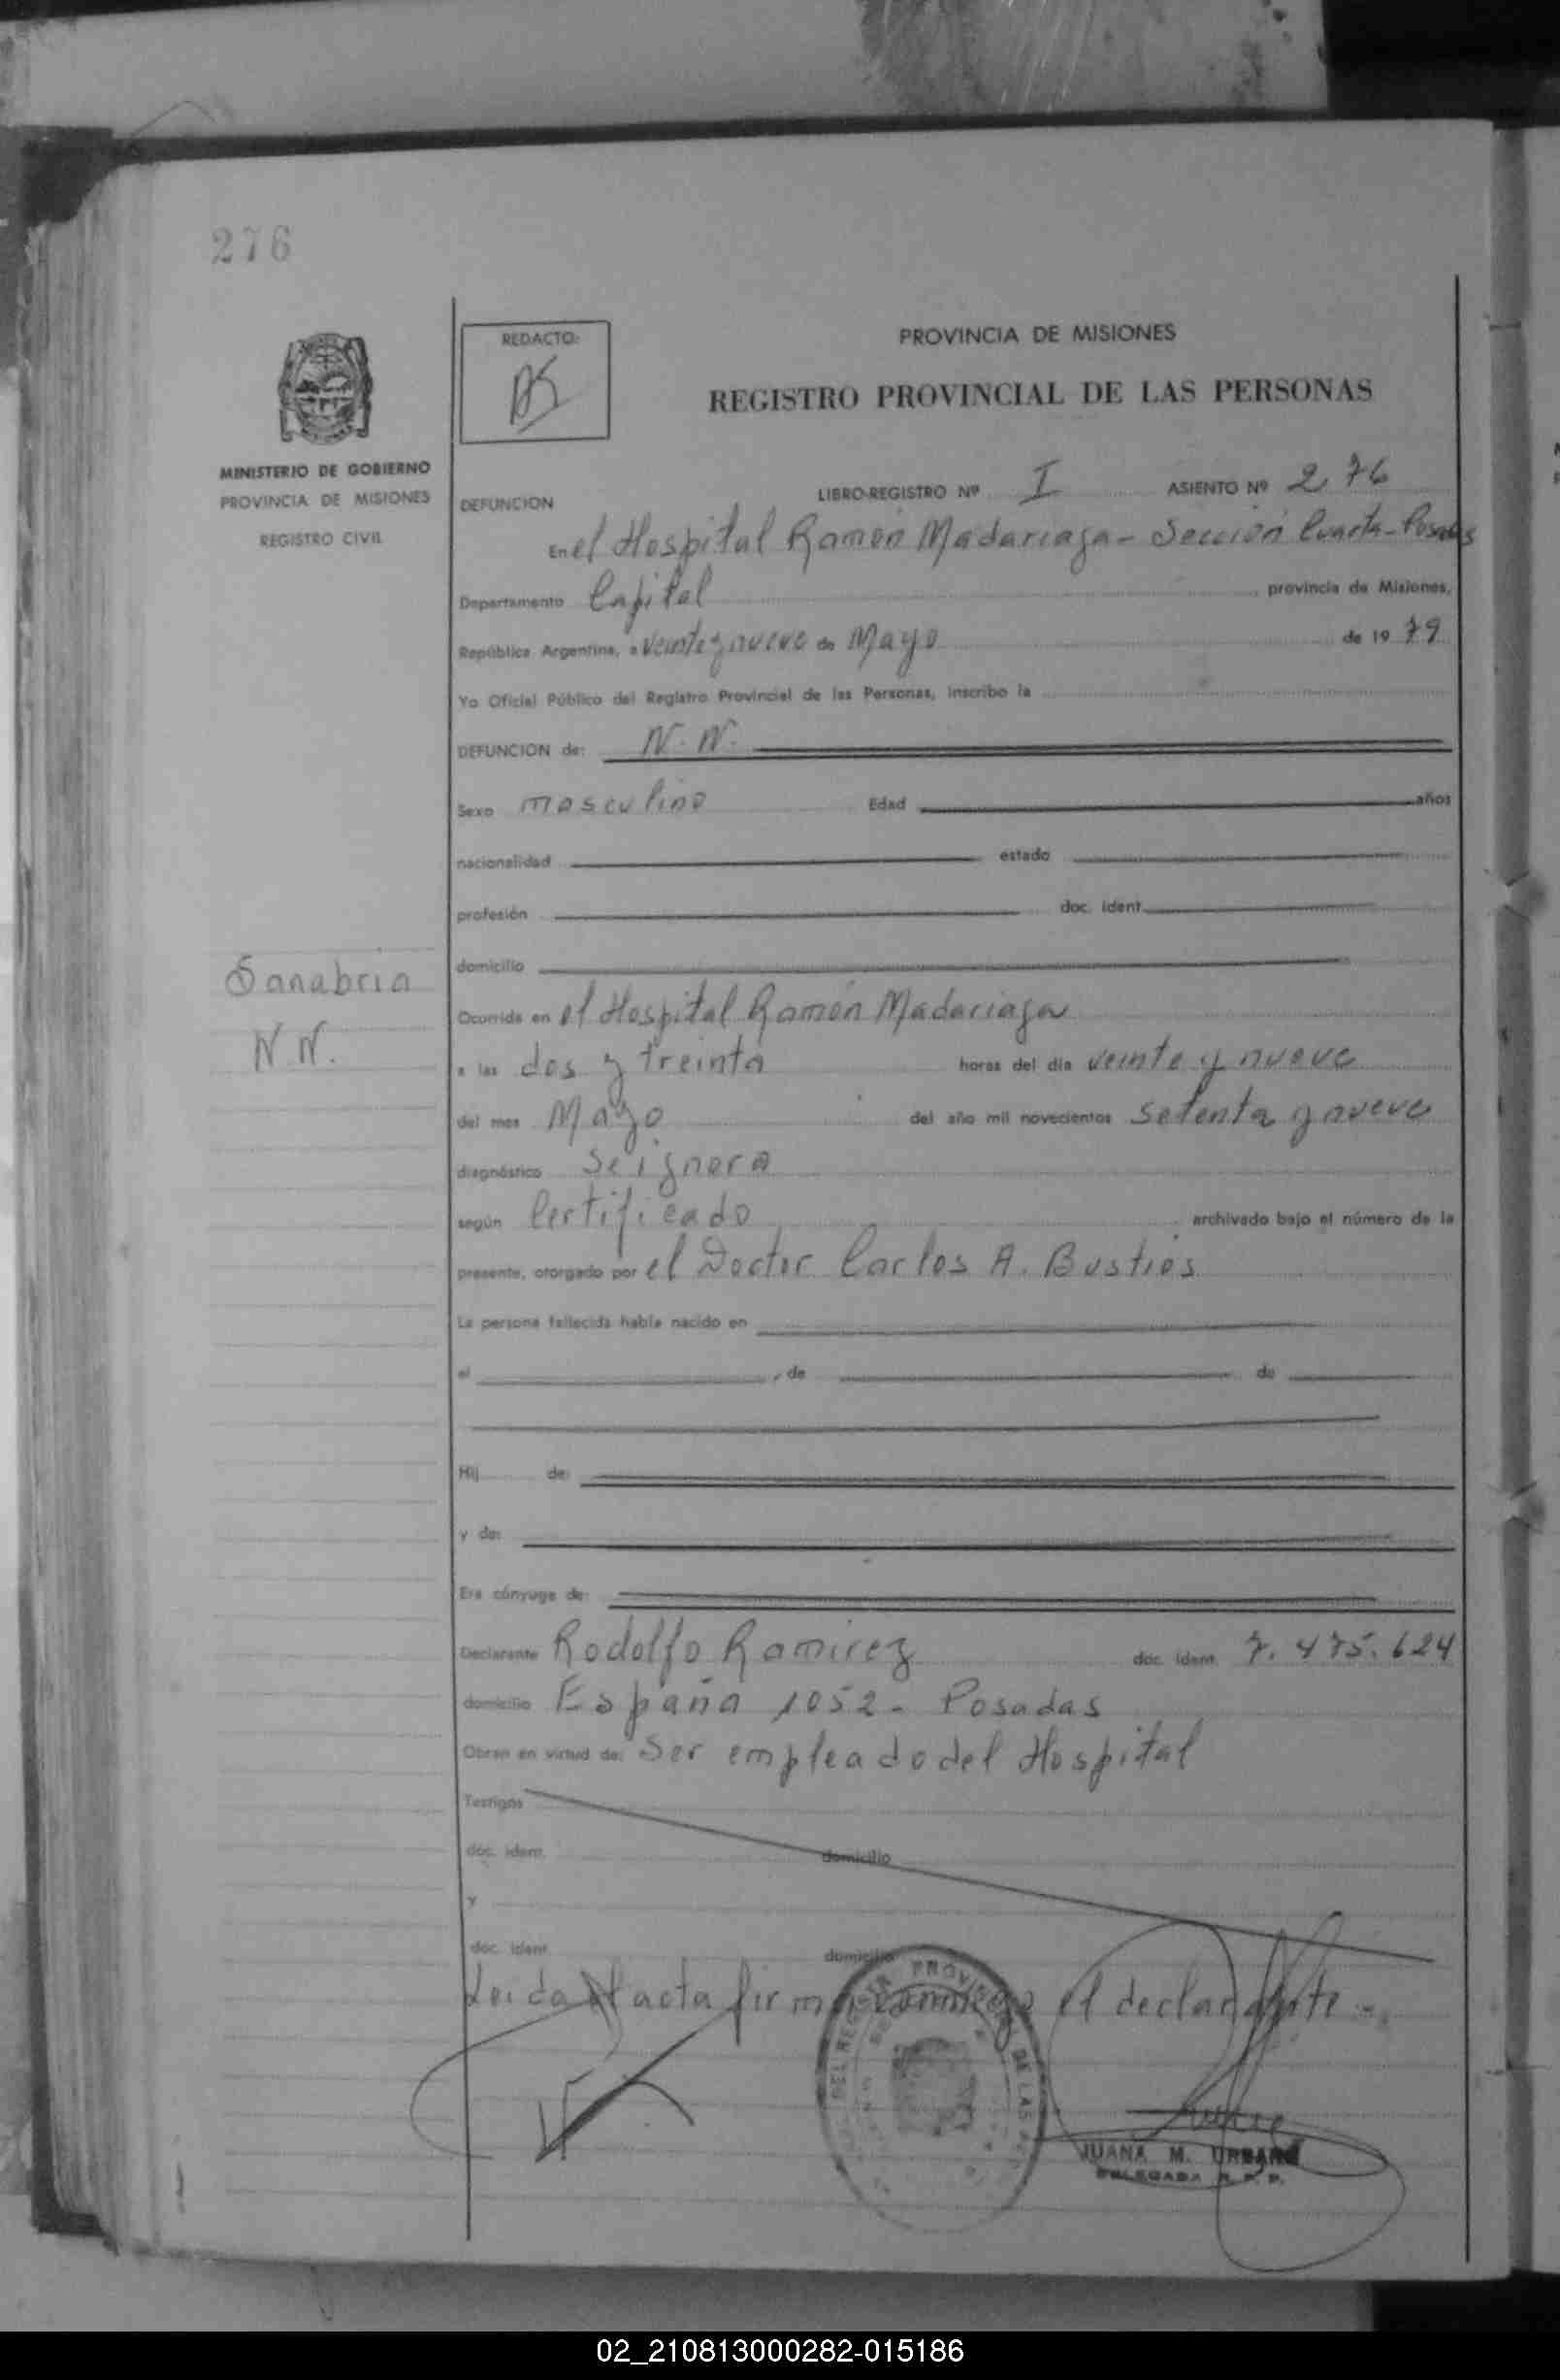 276
REDACTO:
PROVINCIA DE MISIONES
REGISTRO PROVINCIAL DE LAS PERSONAS
MINISTERIO DE GOBIERNO
PROVINCIA DE MISIONES
REGISTRO CIVIL
DEFUNCION LIBRO-REGISTRO Nº I ASIENTO Nº 276
En el Hospital Ramón Madariaga - Sección Cuarta - Posadas
Departamento Capital provincia de Misiones,
República Argentina, a veinte y nueve de Mayo de 1979
Yo Oficial Público del Registro Provincial de las Personas, inscribo la
DEFUNCION de: N. N.
Sexo masculino Edad años
nacionalidad estado
profesión doc. ident.
domicilio
Sanabria
N N.
Ocurrida en el Hospital Ramón Madariaga
a las dos y treinta horas del día veinte y nueve
del mes Mayo del año mil novecientos setenta y nueve
diagnóstico Se ignora
según Certificado archivado bajo el número de la
presente, otorgado por el Doctor Carlos A. Bustios
La persona fallecida había nacido en
el , de de
Hij de:
y de:
Era cónyuge de:
Declarante Rodolfo Ramirez doc. ident. 7.475.624
domicilio España 1052 - Posadas
Obran en virtud de: Ser empleado del Hospital
Testigos
doc. ident. domicilio
y
doc. ident. domicilio
Leida el acta firma conmigo el declarante -
JUANA M. URBANO
DELEGADA R. P. P.
02_210813000282-015186